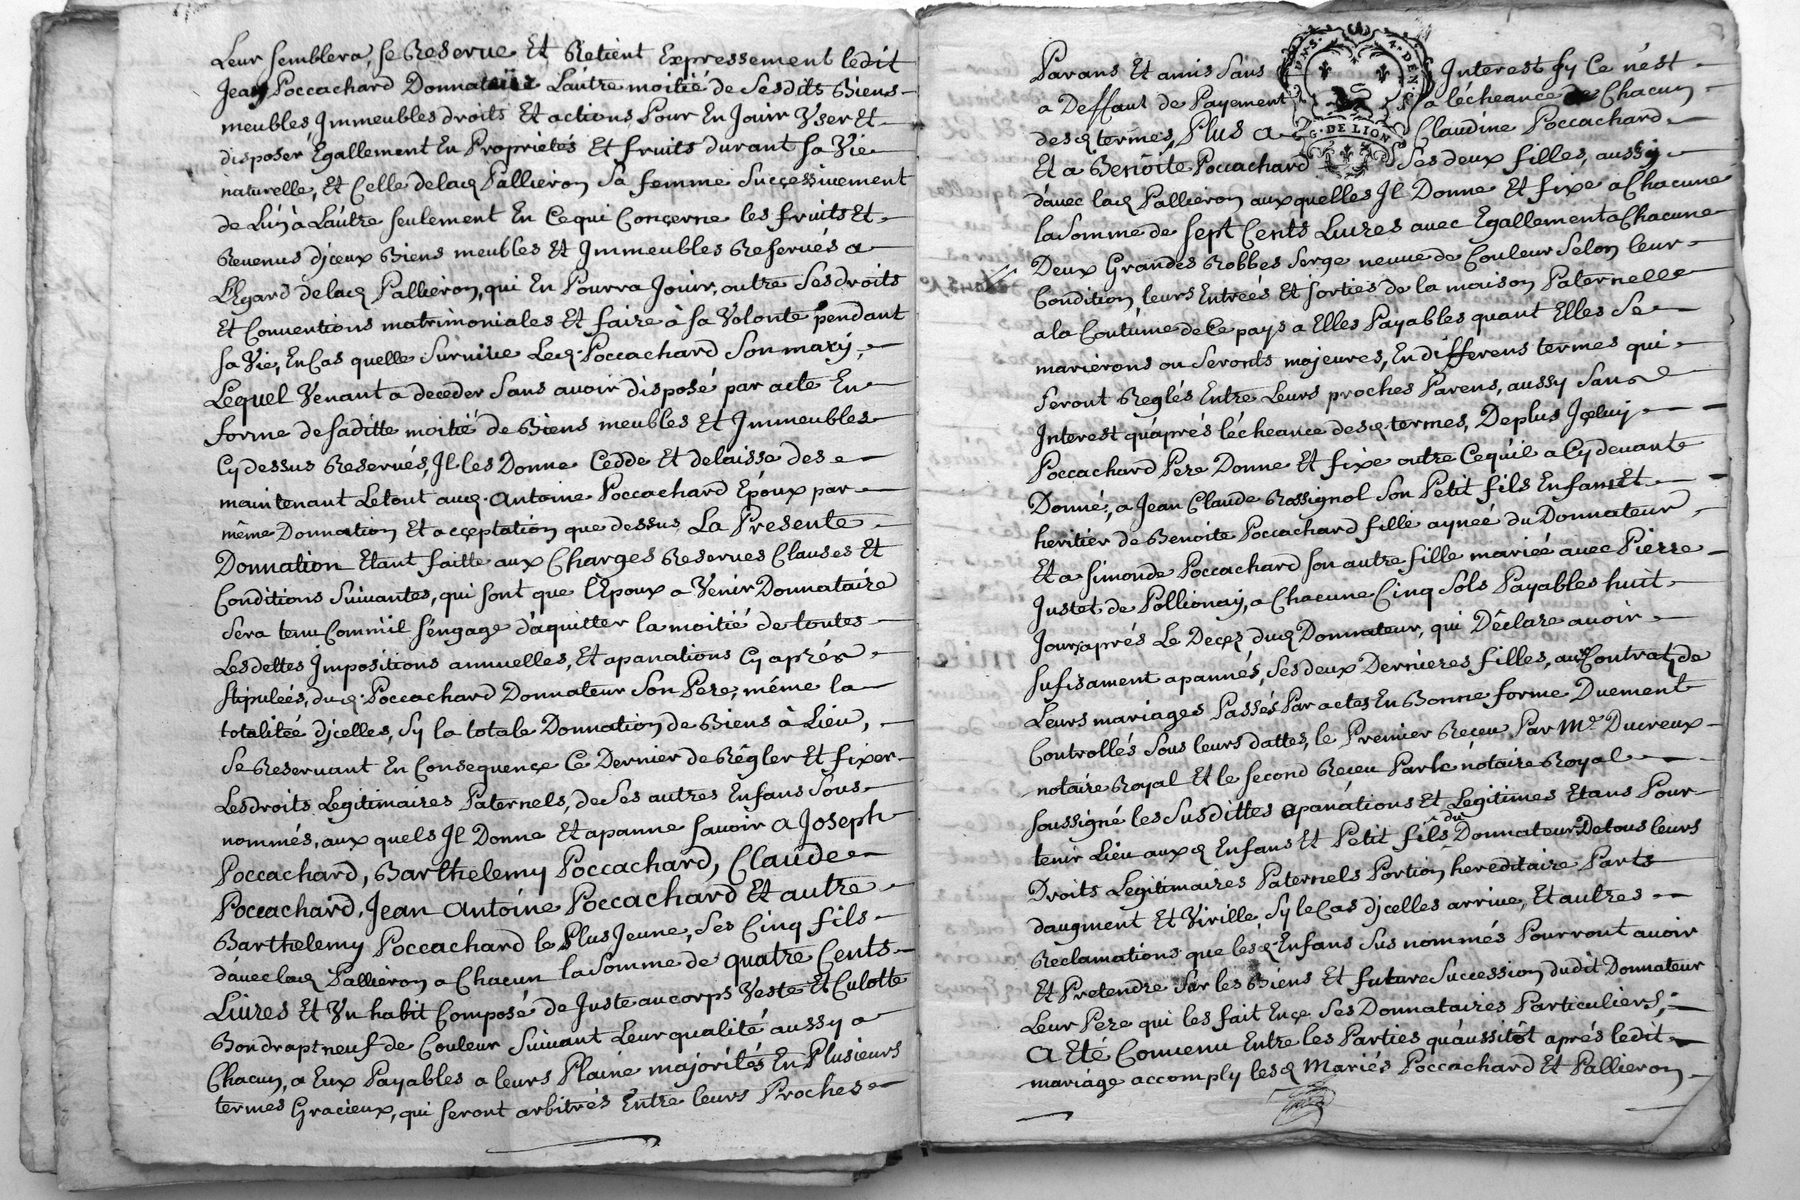 Leur semblera, se Reserve Et Retient Expressement ledit
Jean Poccachard Donnataire Lautre moitié de Sesdits Biens
meubles, Immeubles droits Et actions Pour En Jouir User Et
disposer Egallement En Proprietés Et fruits durant Sa Vie
naturelle, Et Celle delad Pallieron Sa femme Successivement
de Lún à Laútre Seulement En Cequi Conçerne les fruits Et
Revenus djceux Biens meubles Et Immeubles Reservés a
LEgard delad Pallieron, qui En Pourra Jouir, outre Ses droits
Et Conventions matrimoniales Et faire à Sa Volonté pendant
Sa Vie, En Cas quelle Survive Led. Poccachard Son mary,
Lequel Venant a deceder Sans avoir disposé par acte En
forme de Saditte moitié de Biens meubles Et Immeubles
Cydessus Reservés, Il les Donne Cedde Et delaisse des
maintenant Le tout aud. Antoine Poccachard Epoux par
même Donnation Et acçeptation que dessus La Presente
Donnation Etant faitte aux Charges Reserves Clauses Et
Conditions Suivantes, qui sont que LEpoux a Venir Donnataire
Sera tenu Comm'il S'engage d'aquitter la moitié de toutes
Les dettes Impositions annuelles, Et apanations Cy aprés
Stipuleés, dud. Poccachard Donnateur Son Pere, même la
totalitéé djcelles, Sy la totale Donnation de Biens à Lieu,
Se Reservant En Consequençe Ce Dernier de Régler Et fixer
Les droits Legitimaires Paternels, de Ses autres Enfans Sous
nommés, aux quels Il Donne Et apanne Savoir a Joseph
Poccachard, Barthelemy Poccachard, Claude
Poccachard, Jean Antoine Poccachard Et autre
Barthelemy Poccachard le Plus Jeune, Ses Cinq fils
d'avec lad Pallieron a Chacun la Somme de quatre Cents
Livres Et Un habit Composé de Juste au corps Veste Et Culotte
Bon drapt neuf de Couleur Suivant Leur qualité aussy a
Chacun, a Eux Payables a leurs Plaine majorités En Plusieurs
termes Gracieux, qui Seront arbitrés Entre leurs Proches
Parans Et amis Sans Interest Sy Ce nést
a Deffaut de Payement a lécheance de Chacun
desd termes, Plus a Claudine Poccachard
Et a Benoîte Poccachard Ses deux filles, aussy
d'avec lad Pallieron aux quelles Il Donne Et fixe a Chacune
la Somme de Sept Cents Livres avec Egallement a Chacune
Deux Grandes Robbes Serge neuve de Couleur Selon leur
Condition, leurs Entreés Et Sorties de la maison Paternelle
a la Coutûme de Ce pays a Elles Payables quant Elles Se
marierons ou Seronts majeures, En differens termes qui
Seront Reglés Entre Leurs proches Parens, aussy Sans
Interest quaprés lécheance desd termes, De plus Içeluy
Poccachard Pere Donne Et fixe outre Cequ'il a Cy devant
Donné, a Jean Claude Rossignol Son Petit fils Enfant Et
heritiér de Benoite Poccachard fille ayneé du Donnateur
Et a Simonde Poccachard Son autre fille marieé avec Pierre
Justet de Pollionay, a Chacune Cinq Sols Payables huit
Jours aprés Le Decez dud Donnateur, qui Déclare avoir
Sufisament apannés, Ses deux Dernieres filles, aux Contrats de
Leurs mariages Passés Par actes En Bonne forme Duement
Controllés Sous leurs dattes, le Premier Reçeu Par Me Ducreux
notaire Royal Et le Second Reçeu Par le notaire Royal
Soussigné les Susdittes apanátions Et Legitimes Etans Pour
tenir Lieu auxd Enfans Et Petit fils du Donnateur De tous leurs
Droits Legitimaires Paternels Portion hereditaire Parts
d'augment Et Virille Sy le Cas djcelles arrive, Et autres
Reclamations que lesd Enfans Sus nommés Pourront avoir
Et Pretendre Sur les Biéns Et future Succession dudit Donnateur
Leur Pere qui les fait En çe Ses Donnataires Particuliers,
A Eté Convenu Entre les Parties quáussitôt aprés ledit
mariáge accomply lesd Mariés Poccachard Et Pallieron
G. DE LION